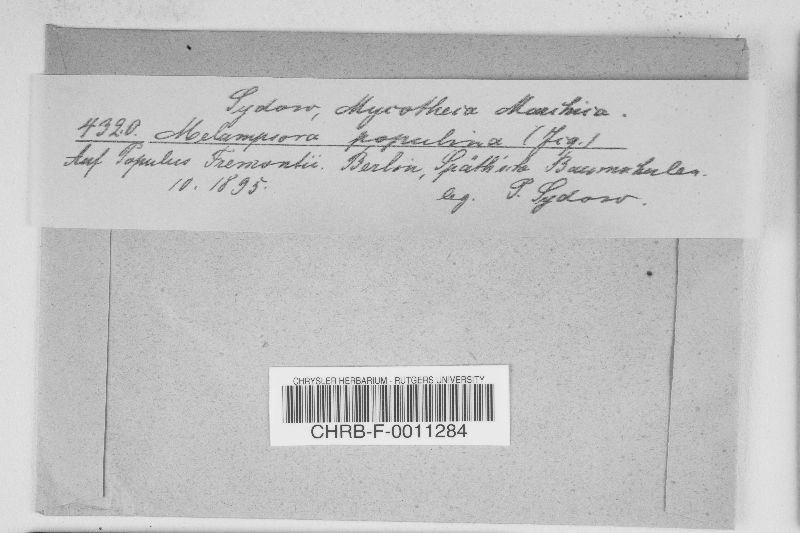 Sydow, Mycotheca Marchica.
4320. Melampsora populina (Jcq.)
Auf Populus Fremontii. Berlin, Späth'sche Baumschulen.
10. 1895.
leg. P. Sydow.
CHRYSLER HERBARIUM - RUTGERS UNIVERSITY
CHRB-F-0011284